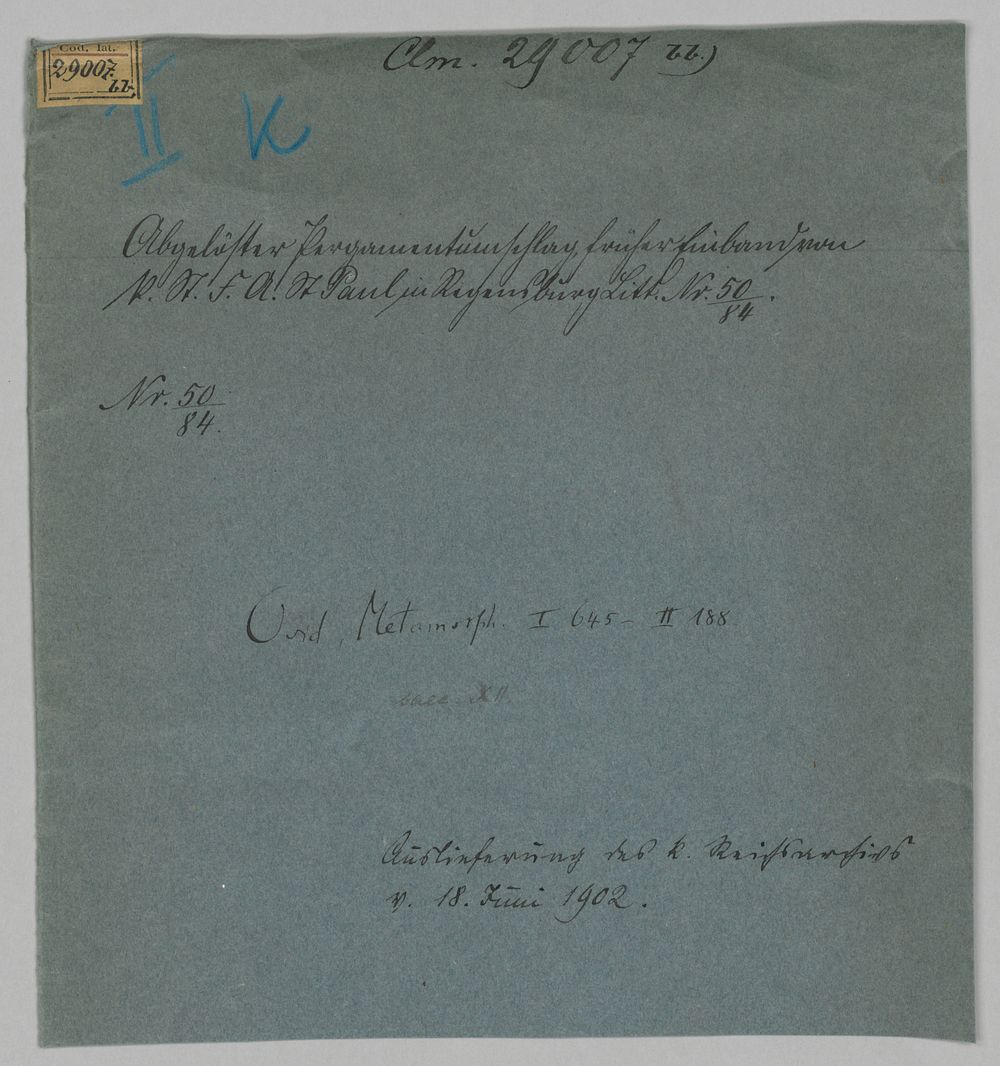 Cod. lat.
29007.
bb.
Clm. 29007 bb)
II K
Abgelöster Pergamentumschlag, früher Einband von
K. St. F. A. St Paul in Regensburg Litt. Nr. 50/84.
Nr. 50/84.
Ovid, Metamorph. I 645 - II 188
saec XII.
Auslieferung des k. Reichsarchivs
v. 18. Juni 1902.